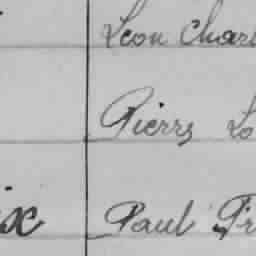 Leon Char
Pierre Lo
ix Paul Fr